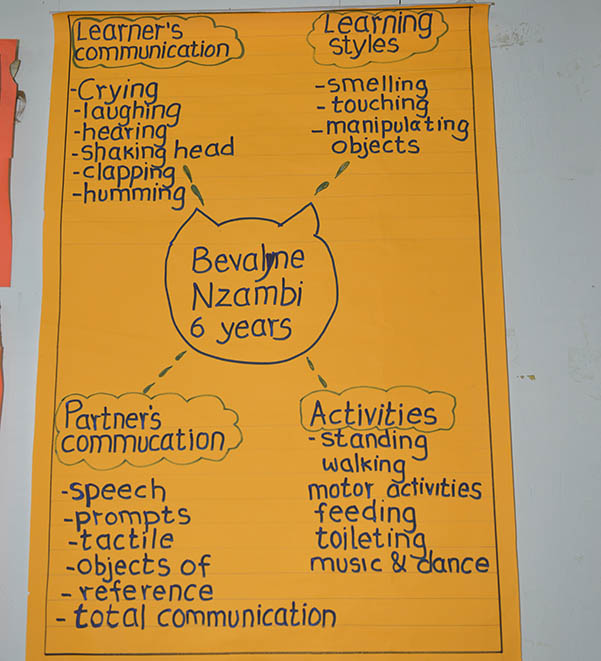 Learner's
communication
-Crying
-laughing
-hearing
-shaking head
-clapping
-humming
Learning
styles
-smelling
-touching
-manipulating
objects
Bevalyne
Nzambi
6 years
Partner's
commucation
-speech
-prompts
-tactile
-objects of
-reference
-total communication
Activities
-standing
walking
motor activities
feeding
toileting
music & dance